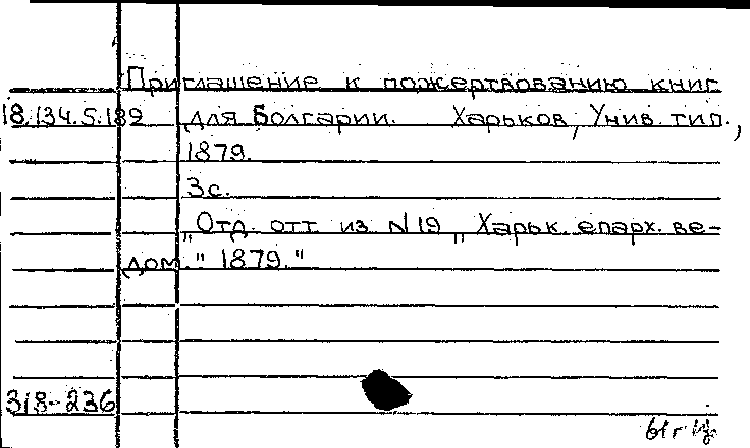 Приглашение к пожертвованию книг
18.134.5.189 для Болгарии. Харьков, Унив. тип.,
1879.
3с.
„Отд. отт. из N19 „Харьк. епарх. ве-
дом." 1879."
318-236